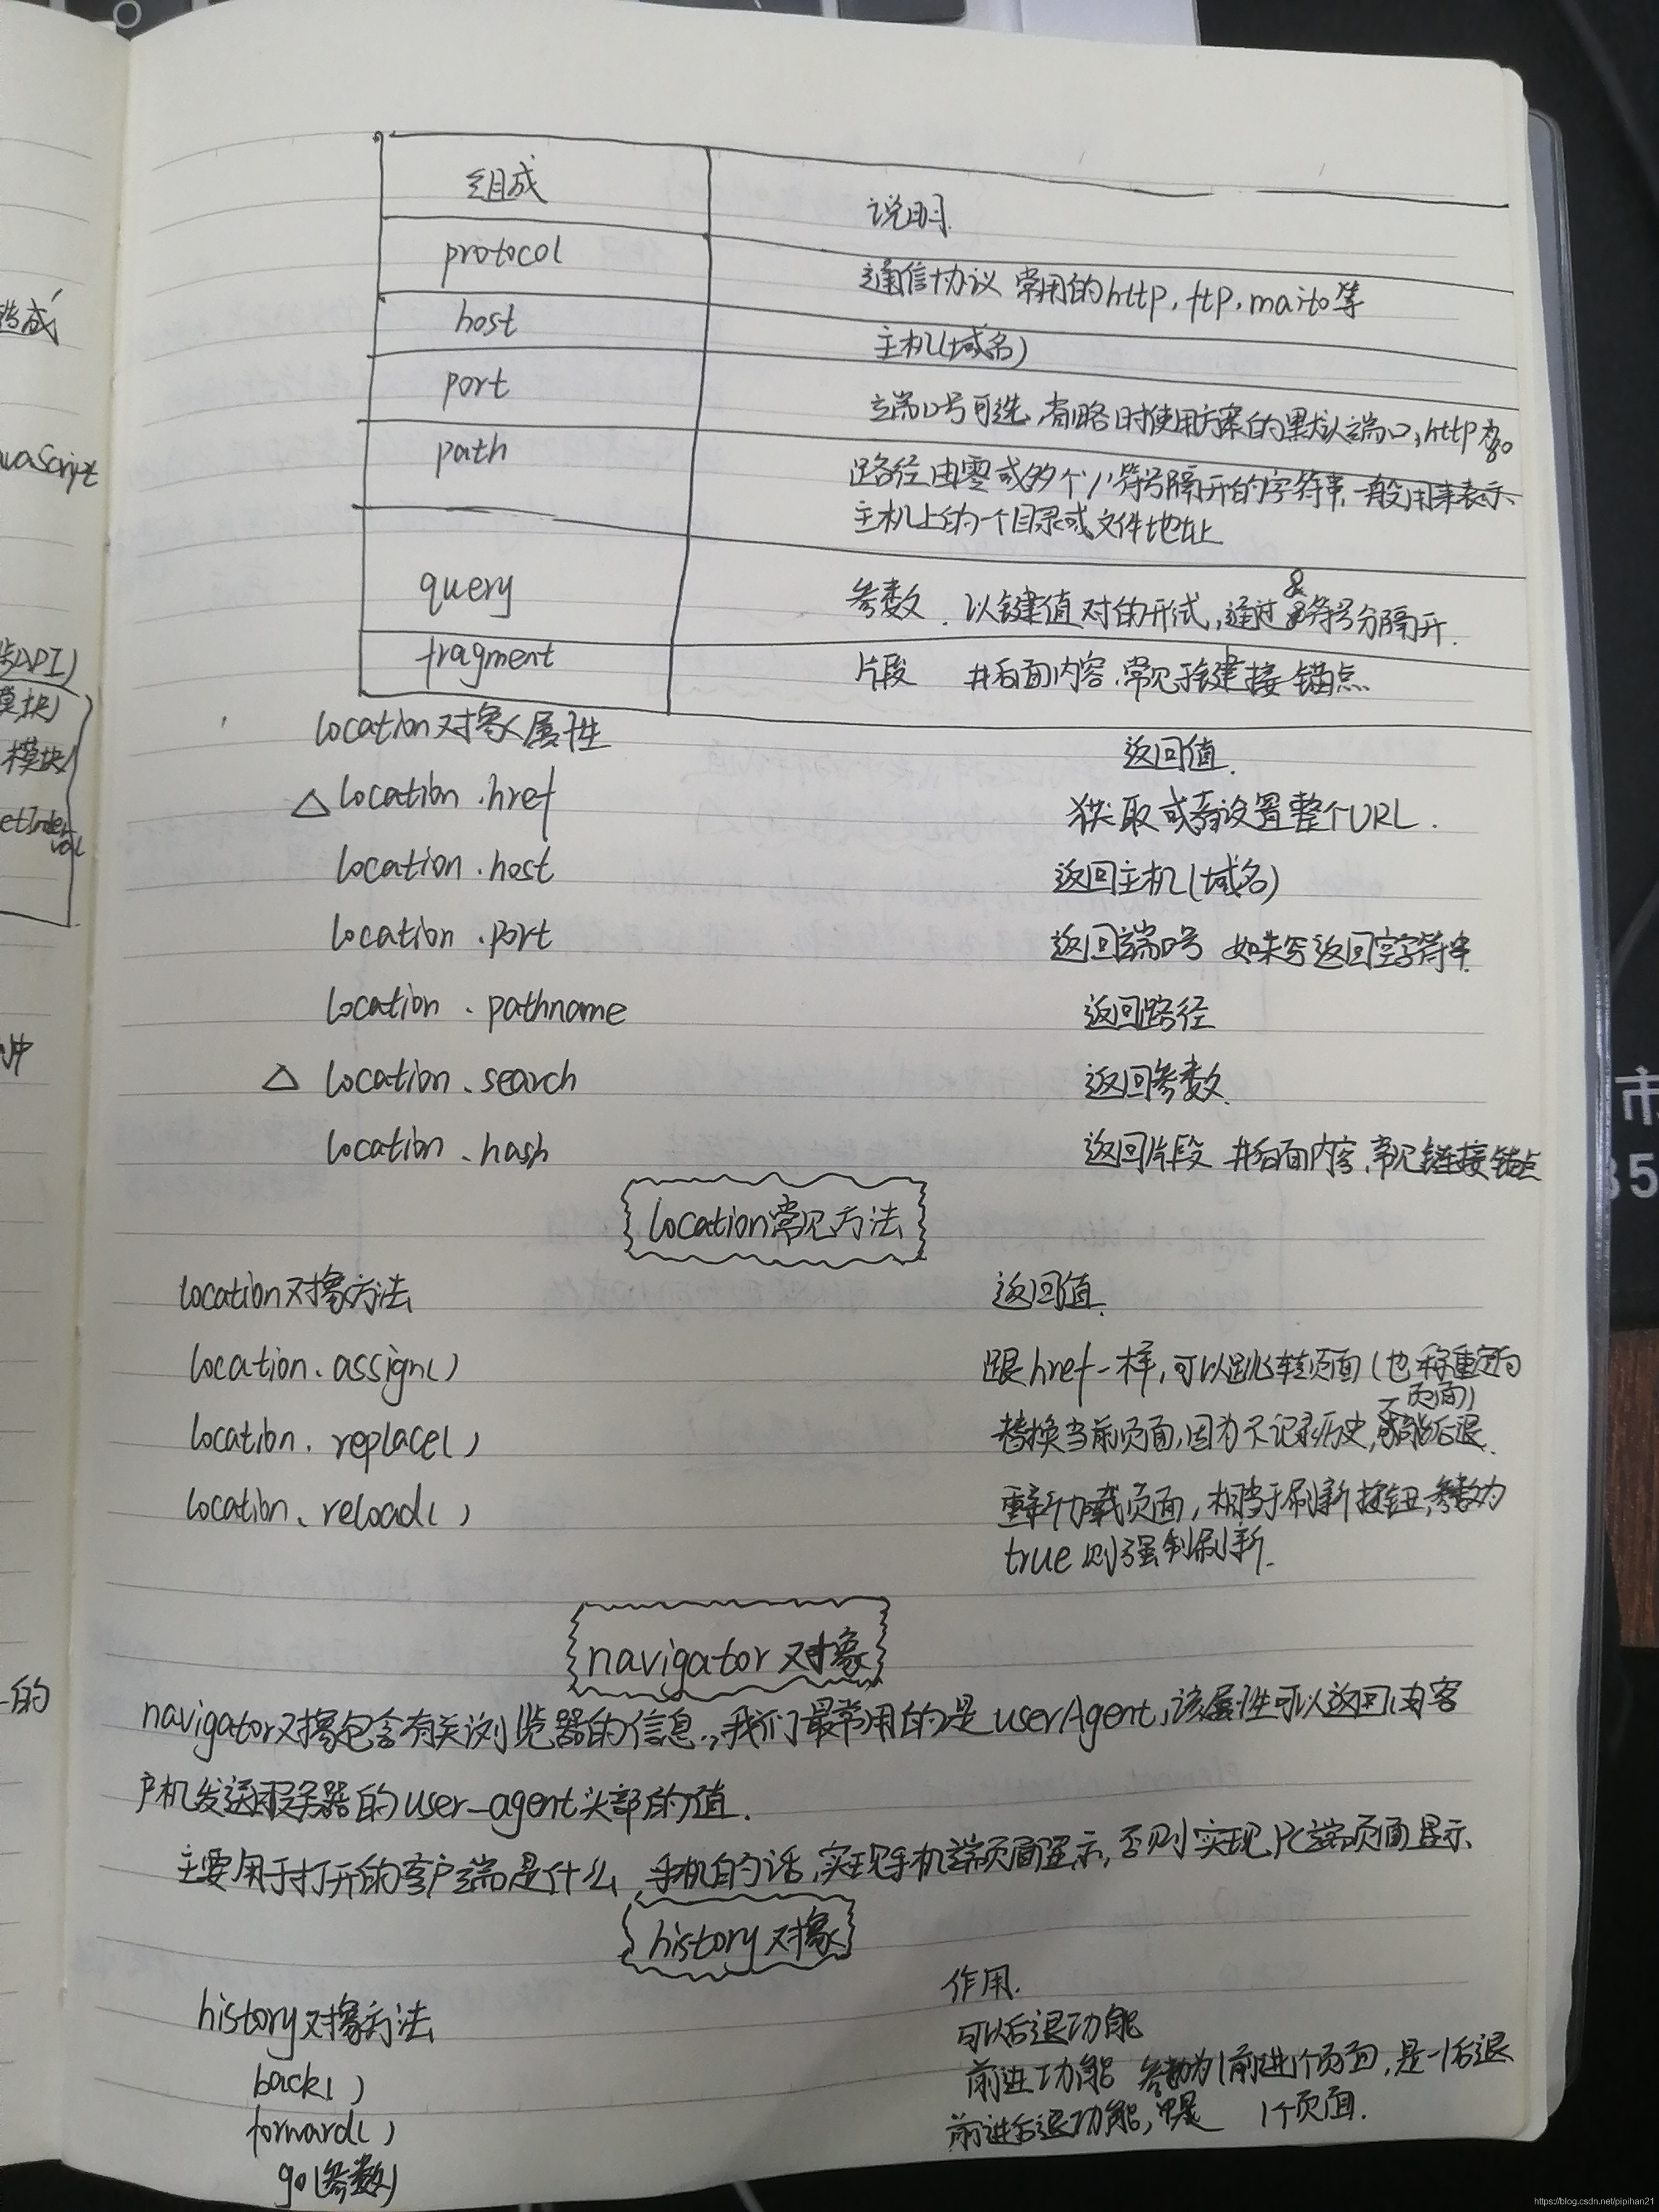 组成 说明
protocol 通信协议 常用的http,ftp,maito等
host 主机(域名)
port 端口号可选,省略时使用方案的默认端口,http为80
path 路径由零或多个'/'符号隔开的字符串,一般用来表示
主机上的一个目录或文件地址
query 参数.以键值对的形式,通过&符号分隔开.
fragment 片段 #后面内容,常见于链接 锚点
location对象属性 返回值.
△ location.href 获取或者设置整个URL.
location.host 返回主机(域名)
location.port 返回端口号 如未写返回空字符串
location.pathname 返回路径
△ location.search 返回参数.
location.hash 返回片段 #后面内容,常见链接锚点
location常见方法
location对象方法 返回值.
location.assign() 跟href一样,可以跳转页面(也称重定向
页面)
location.replace() 替换当前页面,因为不记录历史,不能后退.
location.reload() 重新加载页面,相当于刷新按钮,参数为
true则强制刷新.
navigator对象
navigator对象包含有关浏览器的信息.,我们最常用的是userAgent,该属性可以返回由客
户机发送服务器的user-agent头部的值.
主要用于打开的客户端是什么,手机的话,实现手机端页面显示,否则实现PC端页面显示
history对象
history对象方法 作用.
back() 可以后退功能
forward() 前进功能 参数为1前进1个页面,是-1后退
go(参数) 前进后退功能, 1个页面.
造成
JavaScript
API)
模块)
模块)
的
市
35
https://blog.csdn.net/pipihan21